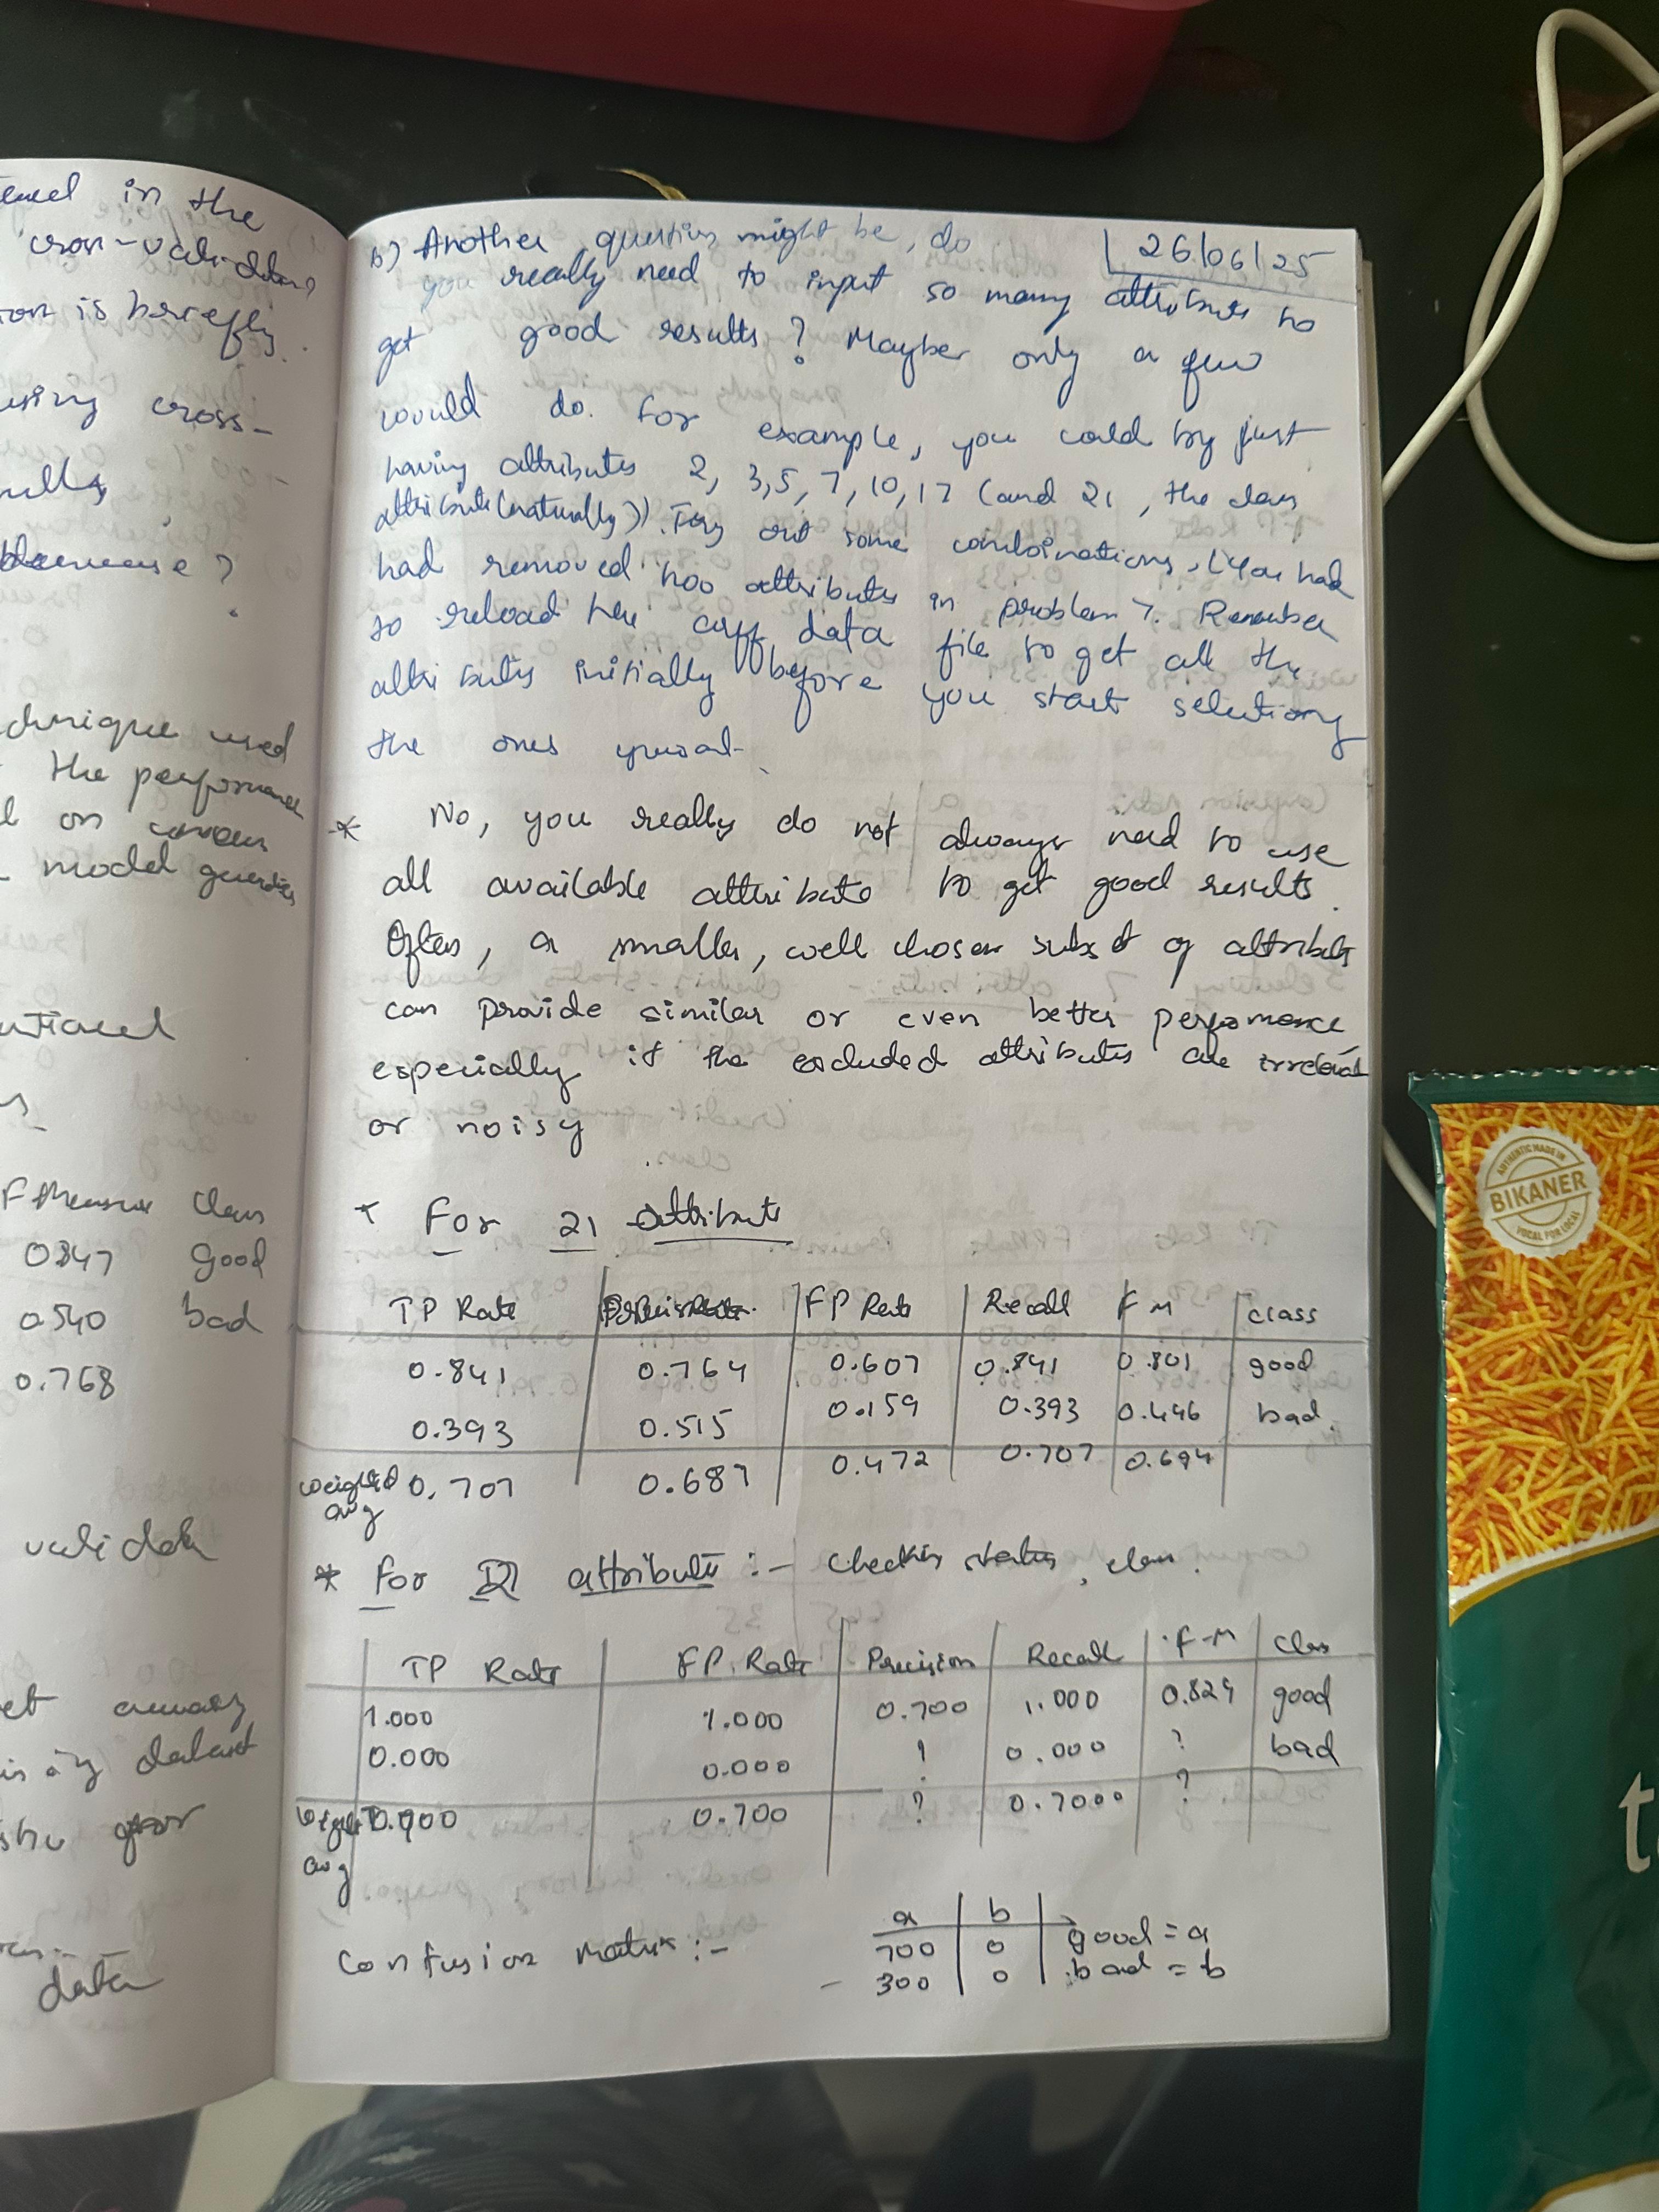 tained in the
cross-validation
ion is briefly
using cross-
nally
decrease ?
chnique used
the performance
l on
model
s
F Measure Class
0847 good
0540 bad
0.768
validate
et accuracy
is a g dataset
data
26/06/25
6) Another question might be, do
you really need to input so many attributes to
get good results ? Mayber only a few
would do. For example, you could try just
having attributes 2, 3,5, 7, 10, 17 (and 21, the class
attribute (naturally)). Try out some combinations. (You had
had removed two attributes in problem 7. Remember
to reload the arff data file to get all the
attributes initially before you start selecting
the ones
* No, you really do not always need to use
all available attribute to get good results.
Often, a smaller, well chosen subset of attributes
can provide similar or even better perfomance,
especially if the excluded attributes are irrelevant
or noisy
* For 21 attribute
TP Rate FP Rate Recall F M class
0.841 0.764 0.607 0.841 0.801 good
0.393 0.515 0.159 0.393 0.446 bad
weighted avg 0.707 0.687 0.472 0.707 0.694
* For attribute :- checkin status, class.
TP Rate FP. Rate Precision Recall F-M Class
1.000 1.000 0.700 1.000 0.824 good
0.000 0.000 ? 0.000 ? bad
avg 0.700 ? 0.7000 ?
a b
Confusion matrix :- 700 0 good = a
300 0 bad = b
AUTHENTIC MADE IN
BIKANER
VOCAL FOR LOCAL
t